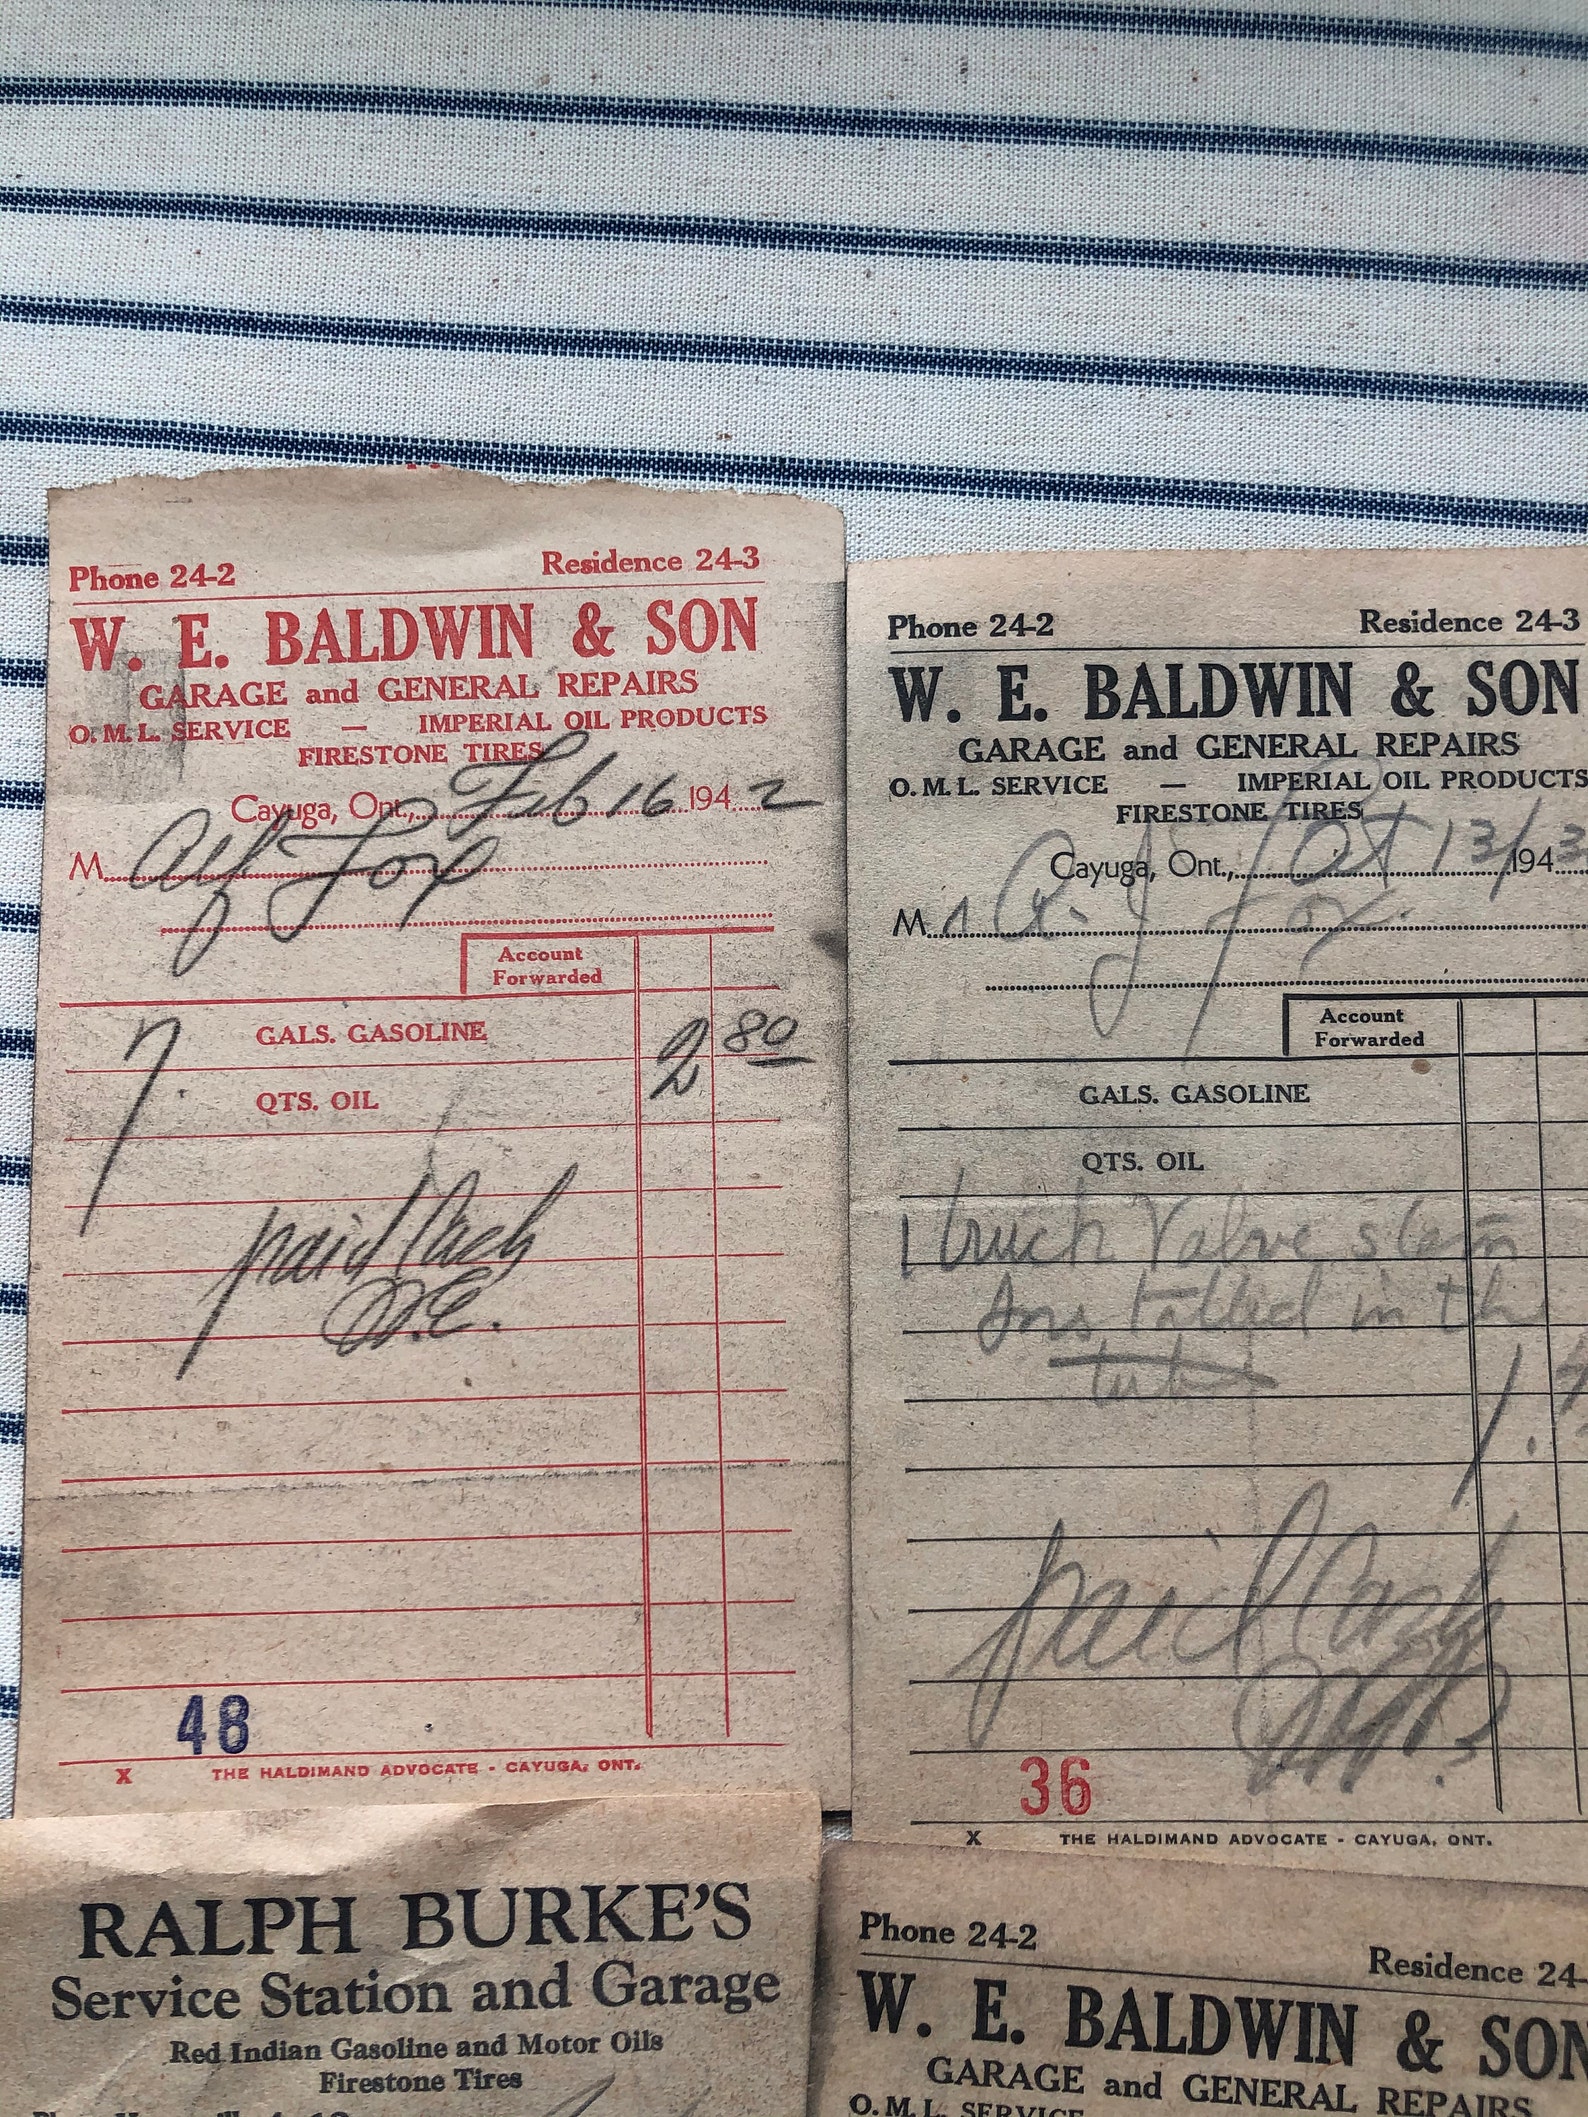 Phone 24-2 Residence 24-3
W. E. BALDWIN & SON
GARAGE and GENERAL REPAIRS
O. M. L. SERVICE — IMPERIAL OIL PRODUCTS
FIRESTONE TIRES
Cayuga, Ont., Feb 16 1942
M Alf Fox
Account
Forwarded
7. GALS. GASOLINE 2 80
QTS. OIL
paid Cash
48
X THE HALDIMAND ADVOCATE - CAYUGA, ONT.
Phone 24-2 Residence 24-3
W. E. BALDWIN & SON
GARAGE and GENERAL REPAIRS
O. M. L. SERVICE — IMPERIAL OIL PRODUCTS
FIRESTONE TIRES
Cayuga, Ont., Oct 13/ 1943
Mr A. J. Fox.
Account
Forwarded
GALS. GASOLINE
QTS. OIL
1 truck Valve stem
Installed in th
tube
1.
paid Cash
36
X THE HALDIMAND ADVOCATE - CAYUGA, ONT.
RALPH BURKE'S
Service Station and Garage
Red Indian Gasoline and Motor Oils
Firestone Tires
Phone 24-2 Residence 24-
W. E. BALDWIN & SON
GARAGE and GENERAL REPAIRS
O. M. L. SERVICE